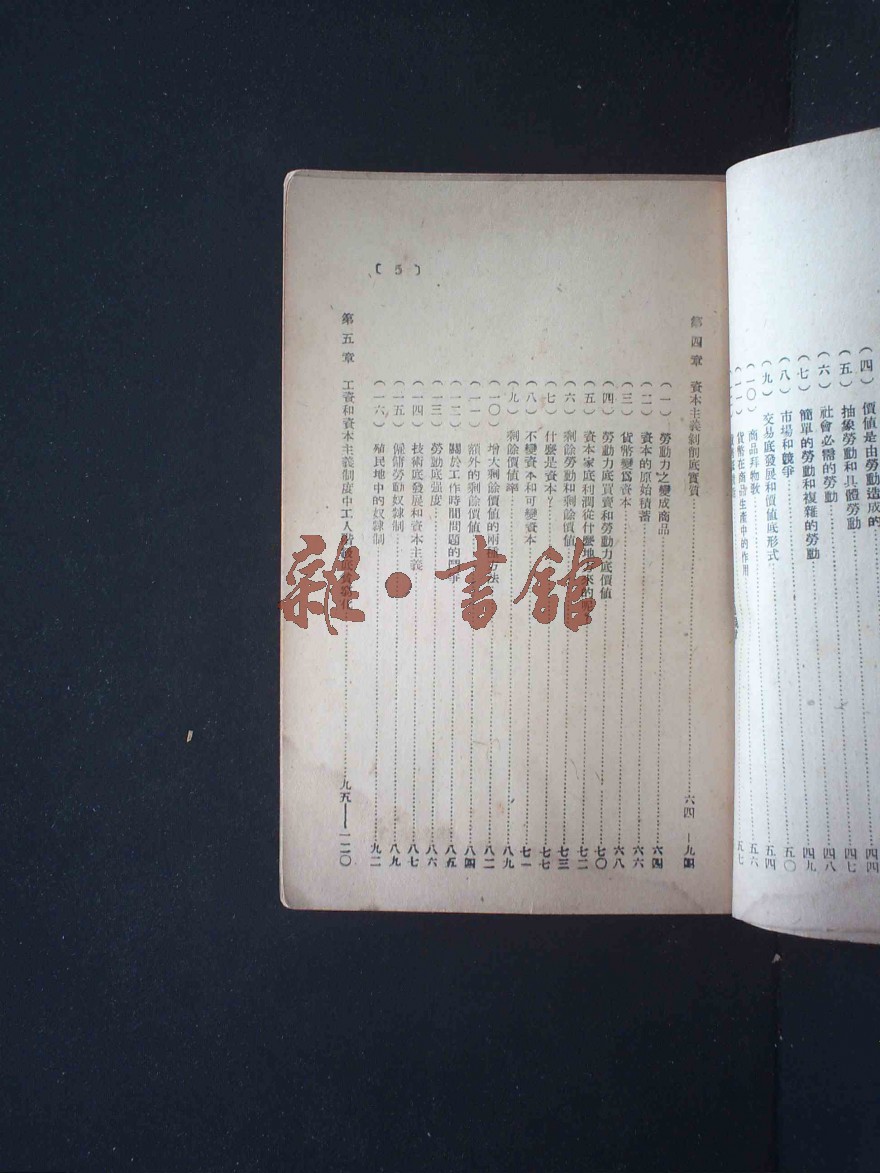 (四) 價值是由勞動造成的 四四
(五) 抽象勞動和具體勞動 四七
(六) 社會必需的勞動 四八
(七) 簡單的勞動和複雜的勞動 四九
(八) 市場和競爭 五〇
(九) 交易底發展和價值底形式 五四
(一〇) 商品拜物教 五六
(一一) 貨幣在商品生產中的作用 五七
第四章 資本主義剝削底實質 六四—九四
(一) 勞動力之變成商品 六四
(二) 資本的原始積蓄 六六
(三) 貨幣變爲資本 六八
(四) 勞動力底買賣和勞動力底價值 七〇
(五) 資本家底利潤從什麽地方來的呢 七二
(六) 剩餘勞動和剩餘價值 七三
(七) 什麽是資本? 七七
(八) 不變資本和可變資本 七一
(九) 剩餘價值率 八九
(一〇) 增大剩餘價值的兩種方法 八二
(一一) 額外的剩餘價值 八四
(一二) 關於工作時間問題的鬥爭 八五
(一三) 勞動底强度 八六
(一四) 技術底發展和資本主義 八七
(一五) 僱傭勞動奴隸制 八九
(一六) 殖民地中的奴隸制 九二
第五章 工資和資本主義制度中工人階級底貧窮化 九五—一二〇
〔5〕
雜·書館